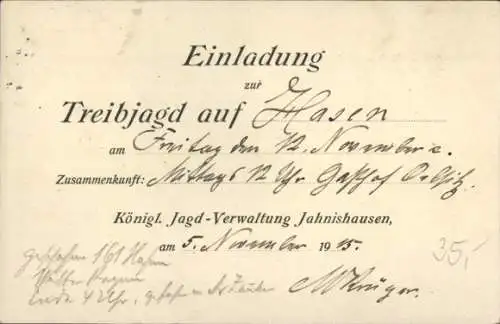 Einladung
zur
Treibjagd auf Hasen
am Freitag den 12. November c.
Zusammenkunft: Mittags 12 Uhr Gasthof
Königl. Jagd-Verwaltung Jahnishausen,
am 5. November 1915.
MKrüger.
geschossen 161 Hasen
Ende 4 Uhr,
35,-